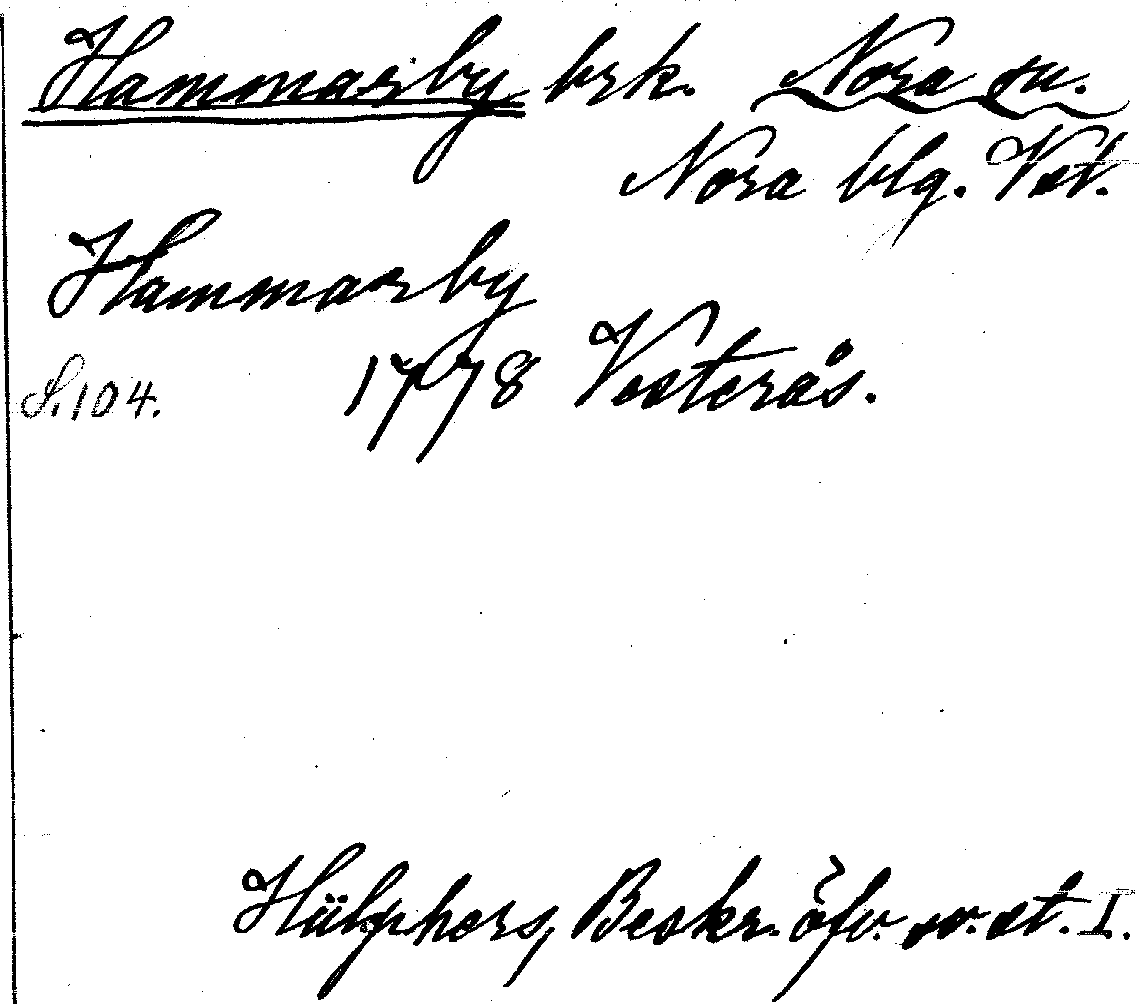 Hammarby brk. Nora sn.
Nora blg. Vst.
Hammarby
S. 104. 1778 Vesterås.
Hülphers, Beskr. öfv. sv. st. I.